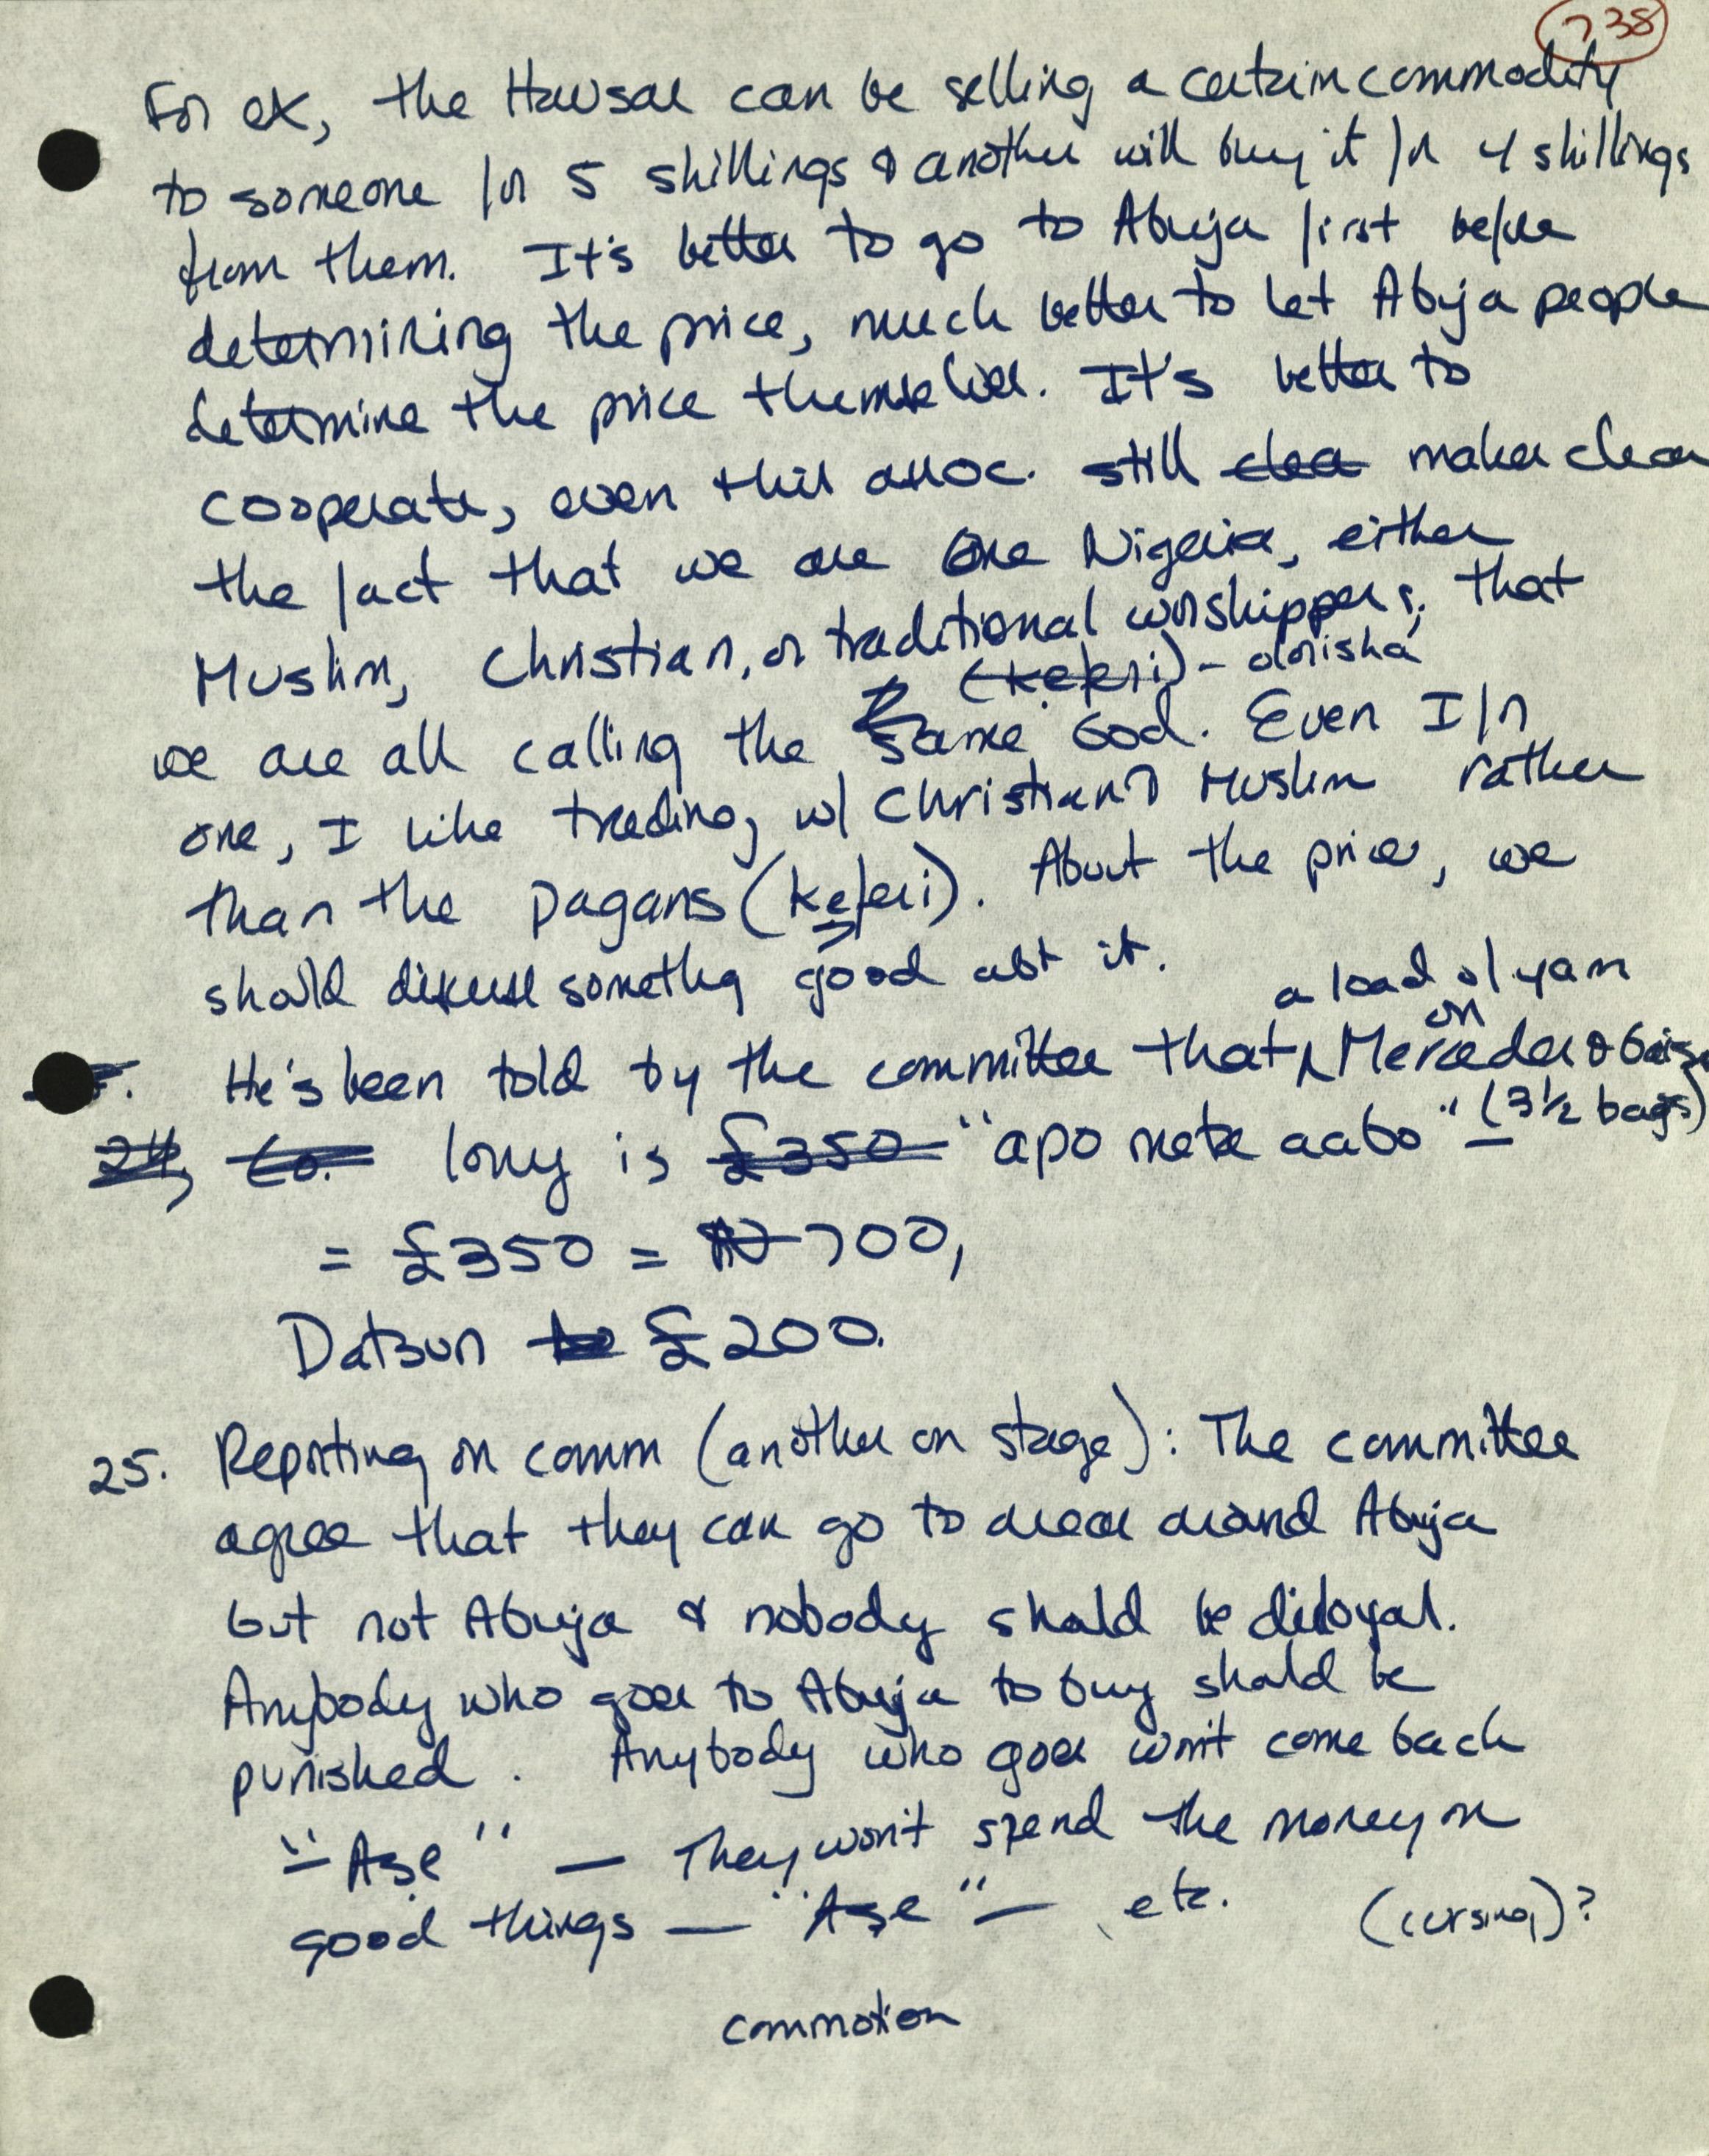 738
For ex, the Hausas can be selling a certain commodity
to someone for 5 shillings & another will buy it for 4 shillings
from them. It's better to go to Abuja first before
determining the price, much better to let Abuja people
determine the price themselves. It's better to
cooperate, even this assoc. still clea makes clear
the fact that we are One Nigeria, either
Muslim, Christian, or traditional worshippers, that
(kẹferi) - olorisha
we are all calling the same God. Even I for
one, I like trading w/ Christian & Muslim rather
than the pagans (kẹferi). About the prices, we
should discuss somethg good abt it.
a load of yam
on
He's been told by the committee that Mercedes &
24, Co. long is £350 "apo mẹta aabo" - (3½ bags)
= £350 = ₦700,
Datsun £200.
25. Reporting on comm (another on stage): The committee
agree that they can go to areas around Abuja
but not Abuja & nobody should be disloyal.
Anybody who goes to Abuja to buy should be
punished. Anybody who goes won't come back
"Aṣẹ" — They won't spend the money on
good things — "Aṣẹ" — etc. (cursing)?
commotion